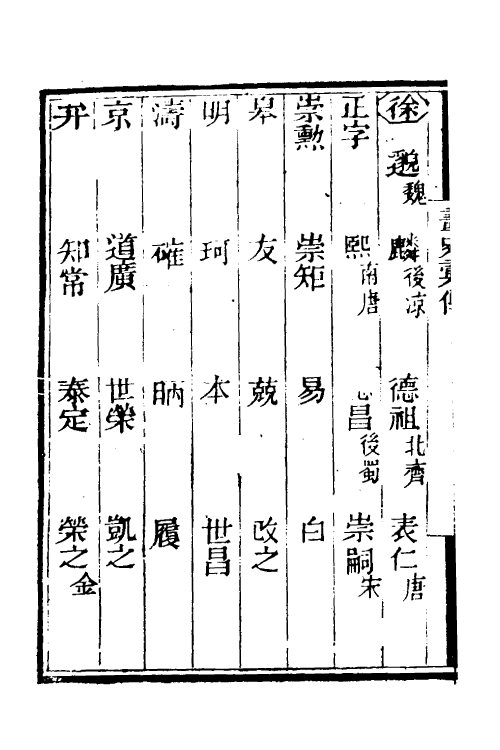 徐　邈魏　麟後涼　德祖北齊　表仁唐
正字　熙南唐　昌後蜀　崇嗣宋
崇勲　崇矩　易　白
皋　友　兢　改之
明　珂　本　世昌
濤　確　昞　履
京　道廣　世榮　凱之
开　知常　泰定　榮之金